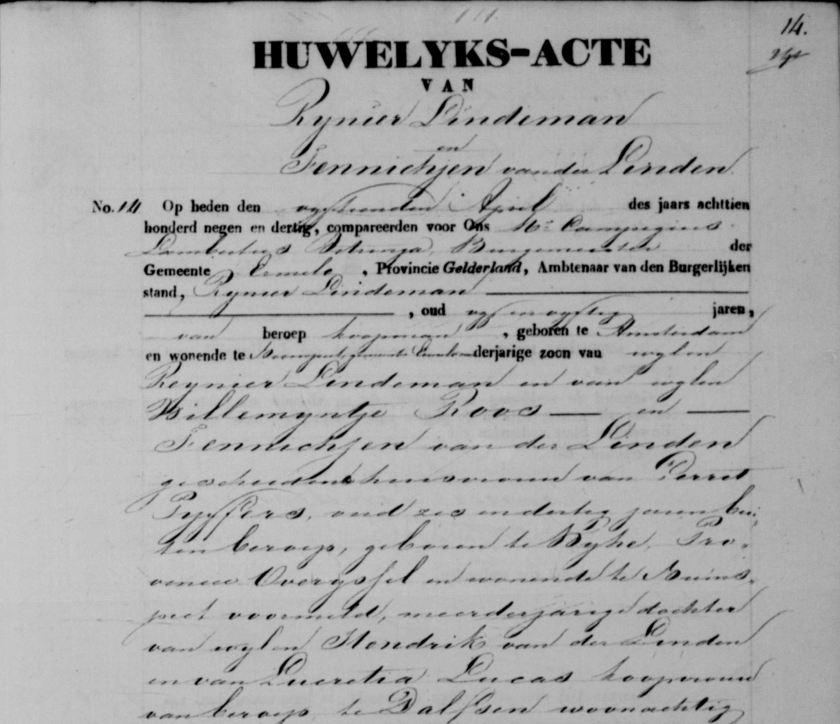 14.
HUWELYKS-ACTE
VAN
Rynier Lindeman
en
Fennichjen van der Linden
No. 14 Op heden den April des jaars achttien
honderd negen en dertig, compareerden voor Ons Mr. Campegius
Lambertus Vitringa, Burgemeester der
Gemeente Ermelo, Provincie Gelderland, Ambtenaar van den Burgerlijken
stand, Rynier Lindeman
, oud jaren,
van beroep koopman, geboren te Amsterdam
en wonende te derjarige zoon van wylen
Reynier Lindeman en van wylen
Willemyntje Roos — en —
Fennichjen van der Linden
gescheidene huisvrouw van Perret
Pyffers, oud zes en dertig jaren bui,
ten beroep, geboren te Pro,
vincie Overyssel en wonende te Nuns,
peet voormeld, meerderjarige dochter
van wylen Hendrik van der Linden
en van Lucretia Lucas koopvrouw
van beroep te Dalfsen woonachtig